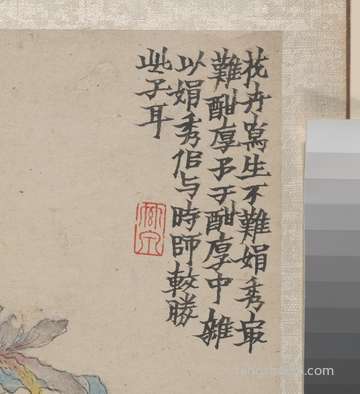 花卉寫生不難娟秀最
難酣厚予于酣厚中雜
以娟秀但与時師較勝
些子耳